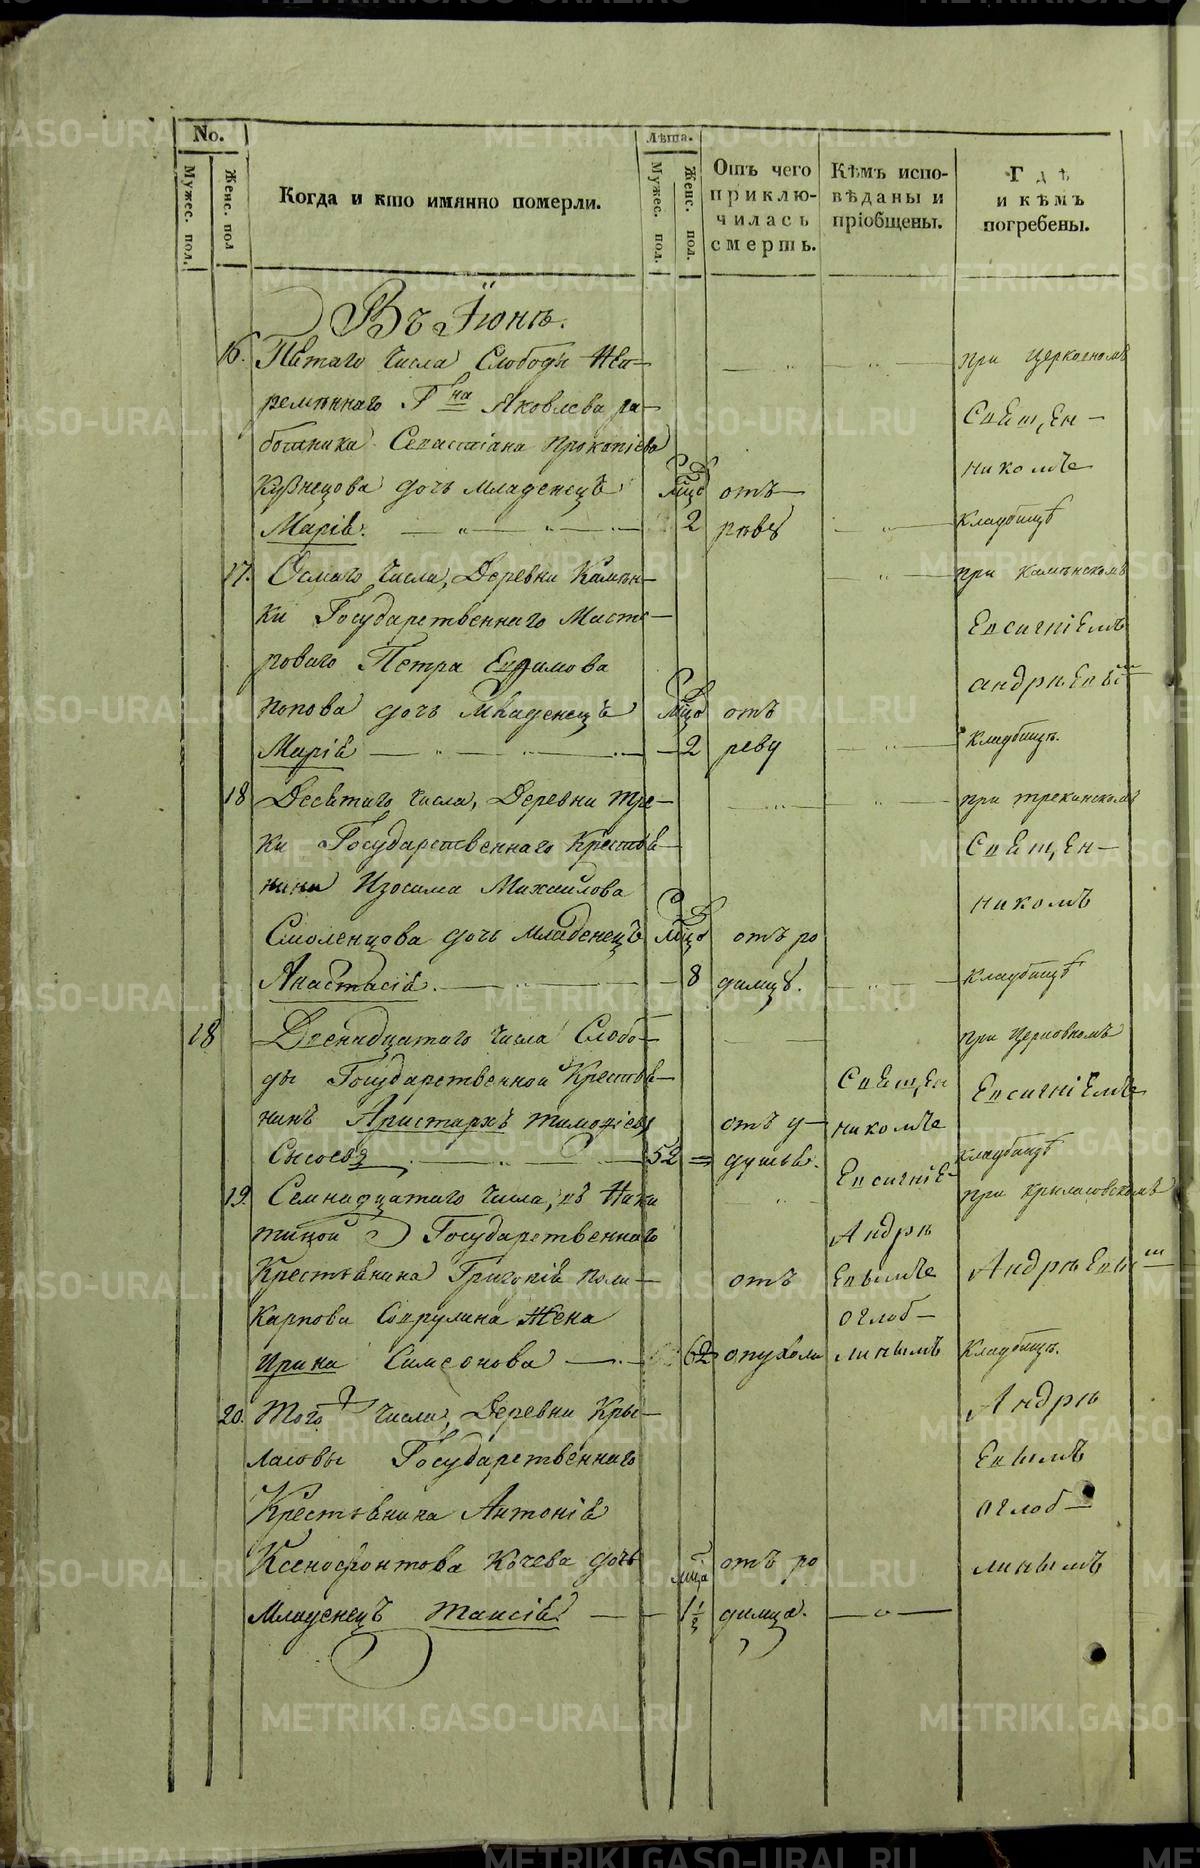 No.
Мужес. пол.
Женс. пол
Когда и кто имянно померли.
Лѣта.
Мужес. пол.
Женс. пол.
Отъ чего
приклю-
чилась
смерть.
Кѣмъ испо-
вѣданы и
пріобщены.
Гдѣ
и кѣмъ
погребены.
Въ Iюнѣ.
16. Пѧтаго числа Слободы
Г на Яковлева ра-
ботника Севастіана Прокопіева
Кузнецова дочь младенецъ отъ
Маріѧ. 2 рѣвȣ
при церковномъ
Свѧщен-
никомъ
кладбищѣ
17. Осмаго числа, Деревни Камѣн-
ки Государственнаго Масте-
роваго Петра Евфимова
Попова дочь Младенецъ отъ
Маріѧ 2 реву
при Камѣнскомъ
Евсигніемъ
Андрѣевы м
кладбищѣ.
18 Десѧтаго числа, Деревни Тре-
ки Государственнаго Крестьѧ-
нина Изосима Михайлова
Смоленцова дочь младенецъ отъ ро
Анастасіѧ. 8 димцȣ.
при трекинскомъ
Свѧщен-
никомъ
кладбищѣ
18 Двенадцатаго числа Слобо-
ды Государственной Крестьѧ-
нинъ Аристархъ Тимофіевъ отъ у-
Сысоевъ 52 душьѧ.
Свѧщен
никомъ
Евсигніе
при Церковномъ
Евсигніемъ
кладбищѣ
19. Семнадцатаго числа, въ Ники
тиной Государственнаго
Крестьѧнина Григоріѧ Поли-
карпова Совrулина Жена отъ
Ирина Симеонова 62 опухоли
Андрѣ
Евымъ
Оглоб-
линымъ
при Крыласовскомъ
Андрѣевы м
кладбищѣ.
20. Того числа, Деревни Кры-
ласовы Государственнаго
Крестьѧнина Антоніѧ
Ксенофонтова Кочева дочь отъ ро
Младенецъ Таисіѧ 1½ димца.
Андрѣ
Евымъ
Оглоб-
линымъ
METRIKI.GASO-URAL.RU